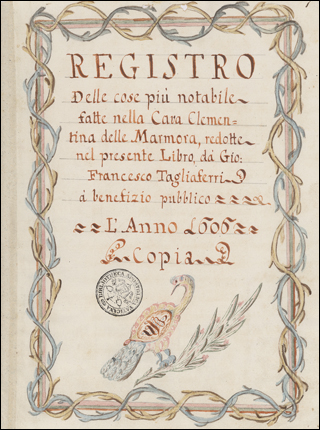 REGISTRO
Delle cose più notabile
fatte nella Cara Clemen=
tina delle Marmora, redotte
nel presente Libro, dà Gio:
Francesco Tagliaferri
à benefizio pubblico
L'Anno 1606
Copia
BIBLIOTHECA APOSTOLICA VATICANA